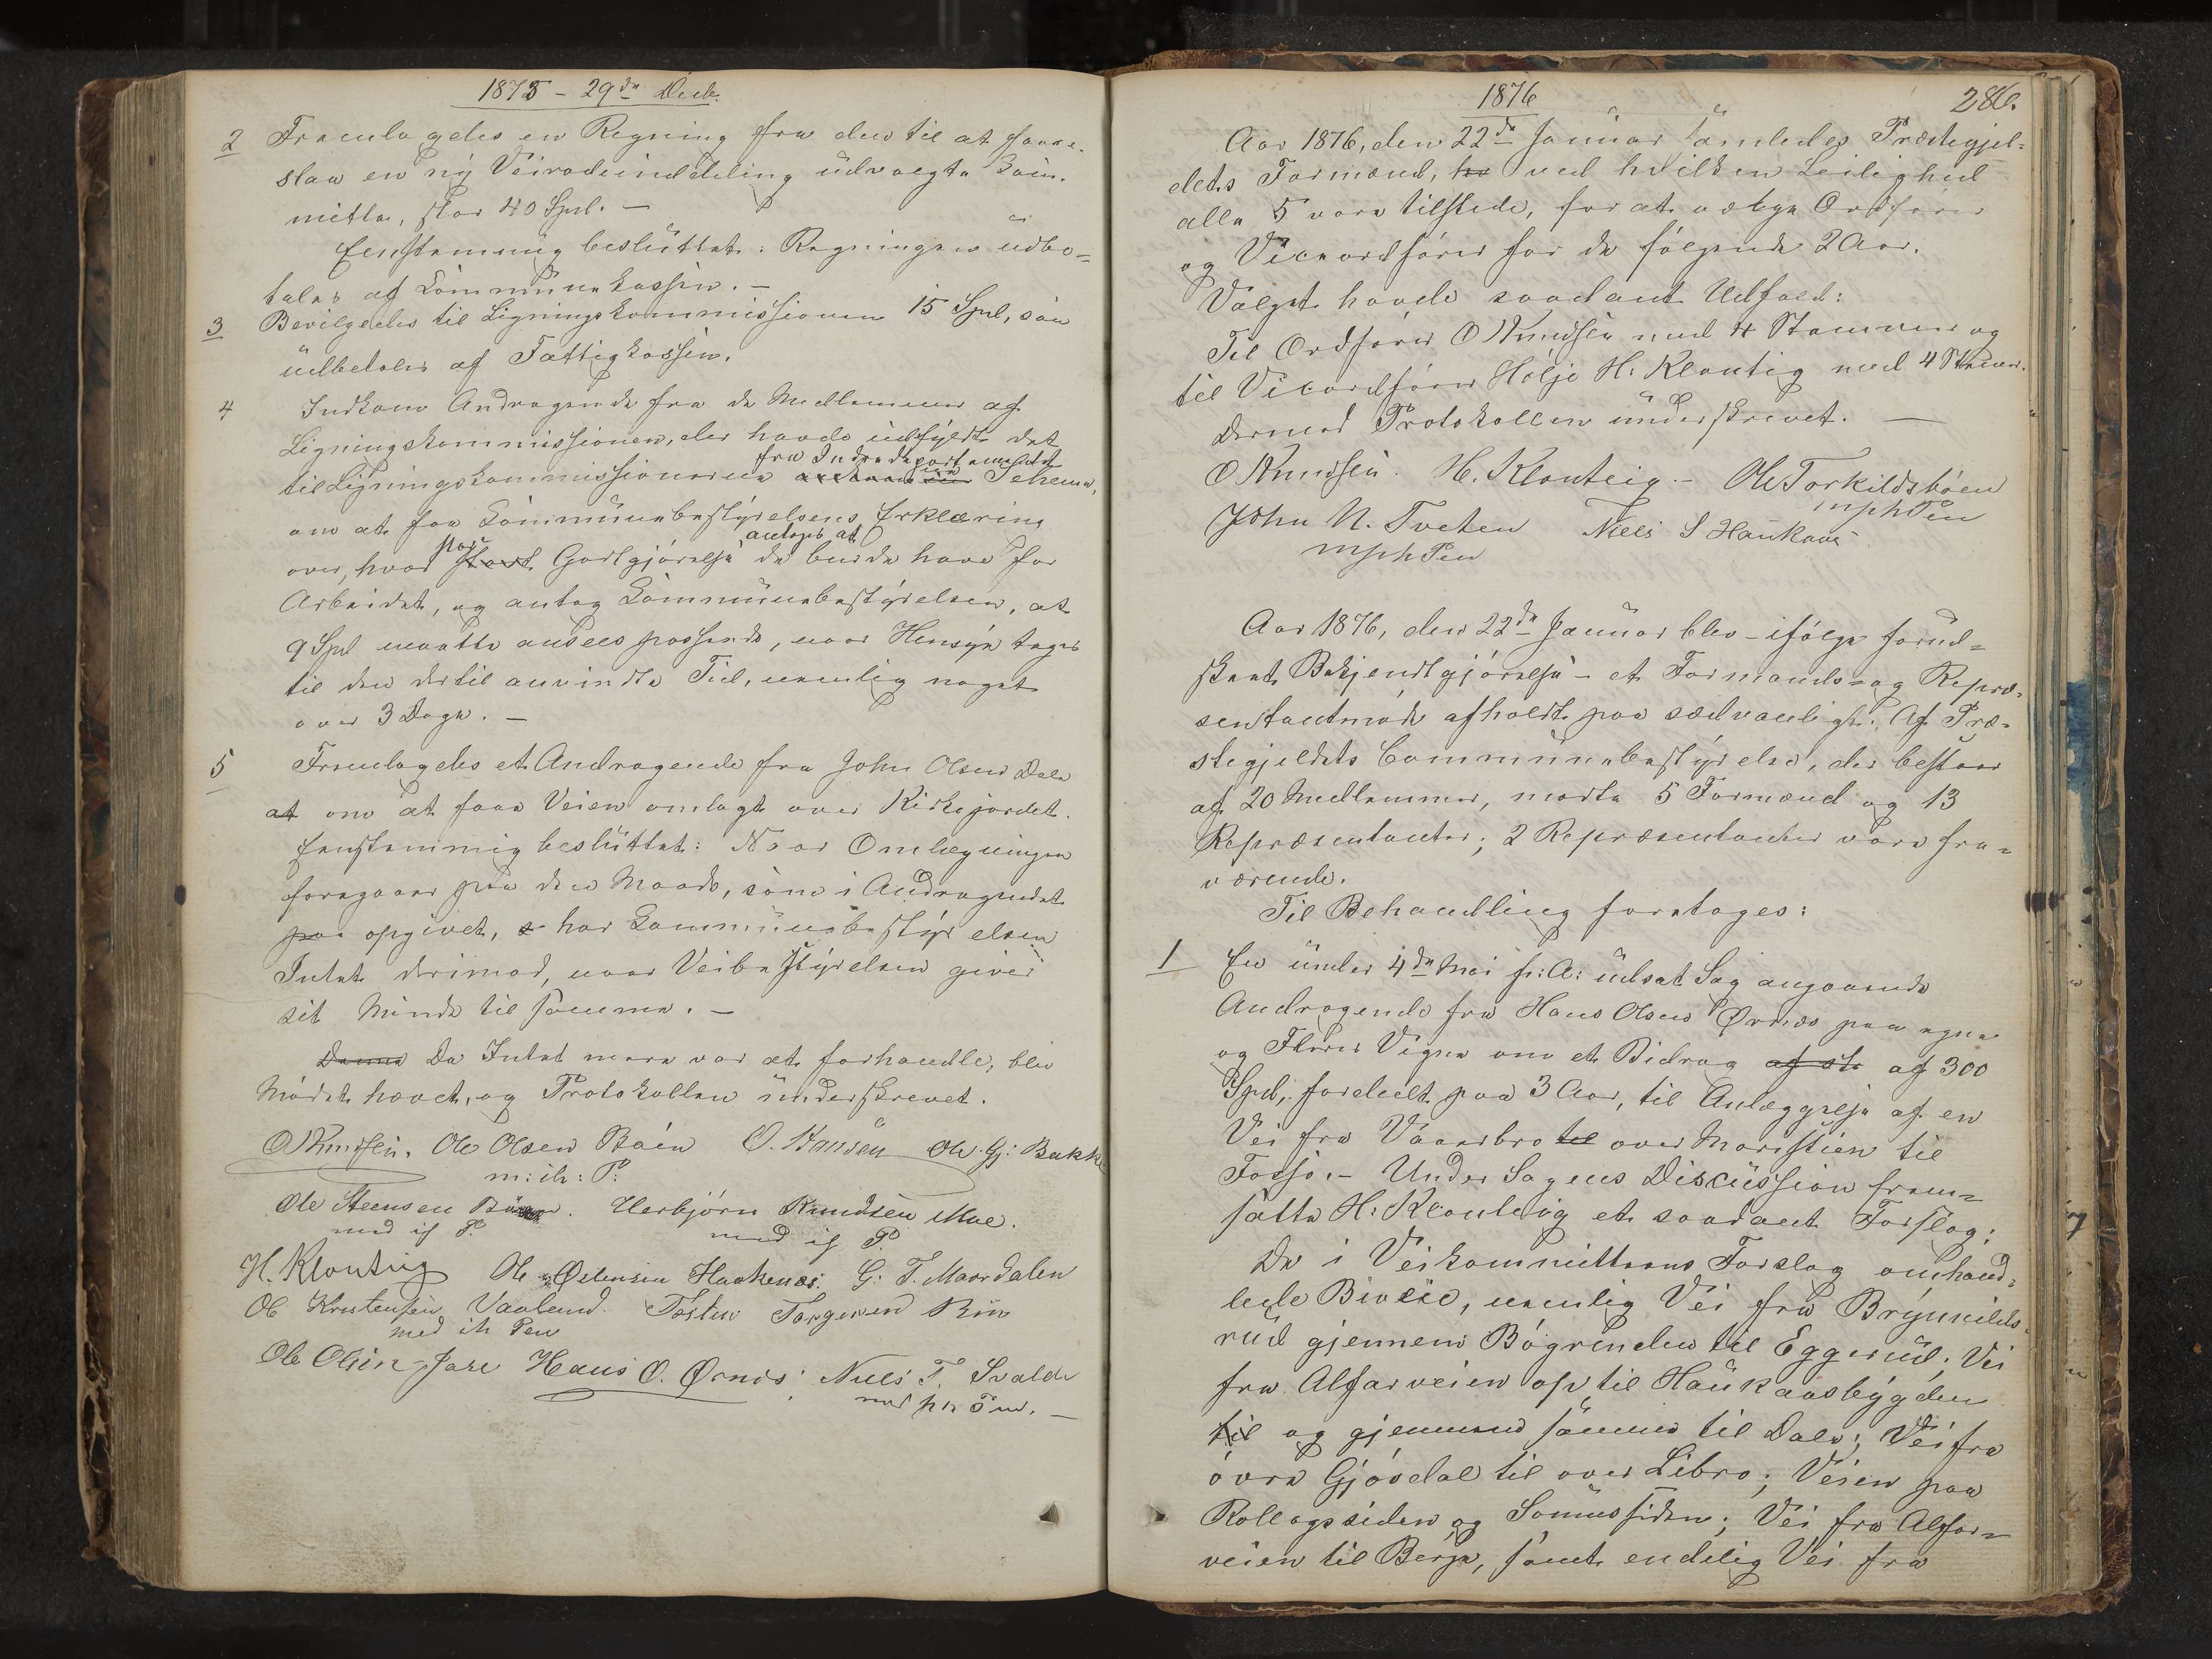 1875 - 29de Decb.
2 Fremlagdes en Regning fra den til at fore-
slaa en ny Veirodeinddeling udvalgte Kom-
mitte, stor 40 Spd. —
Eenstemmig besluttet: Regningen udbe-
tales af Kommunekassen. —
3 Bevilgedes til Ligningskommissionen 15 Spd, som
udbetales af Fattigkassen.
4 Indkom Andragende fra de Medlemmer af
Ligningskommissionen, der havde udfyldt det
fra Indredepartementet
til Ligningskommissionerne Schema,
om at faa Kommunebestyrelsens Erklæring
stor antages at
over, hvor stort Godtgjørelse de burde have for
Arbeidet, og antog Kommunebestyrelsen, at
9 Spd maatte ansees passende, naar Hensyn tages
til den dertil anvendte Tid, nemlig noget
over 3 Dage. —
5 Fremlagdes et Andragende fra John Olsen Dale
at om at faa Veien omlagt over Kirkejordet.
Eenstemmig besluttet: Naar Omlægningen
foregaar paa den Maade, som i Andragendet
paa opgivet, s har Kommunebestyrelsen
Intet derimod, naar Veibestyrelsen giver
sit Minde til samme. —
Denne Da Intet mere var at forhandle, blev
Mødet hævet, og Protokollen underskrevet.
O Knudsen. Ole Olsen Bøen O. Hansen Ole Gj: Bakke
m: ih: P.
Ole Steensen. Herbjørn Knudsen Moe.
med ih P. med ih P.
H. Klonteig Ole Østensen Haakenes. G. T. Maardalen
Ole Kristensen Vaaland. Tosten Torgersen Bøe
med ih Pen
Ole Olsen Jare Hans O. Ørnes Niels T. Svalde
med ph Pen. —
1876 286.
Aar 1876, den 22de Januar samledes Præstegjel-
dets Formænd, ho ved hvilken Leilighed
alle 5 vare tilstede, for at vælge Ordfører
og Viceordfører for de følgende 2 Aar.
Valget havde saadant Udfald:
Til Ordfører O Knudsen med 4 Stemmer og
til Viceordfører Hølje H. Klonteig med 4 Stemr.
Dermed Protokollen underskrevet. —
O Knudsen. H. Klonteig. - Ole Torkildsbøen
mphPen
John N. Tveten Niels S Haukaas
mphPen
Aar 1876, den 22de Januar blev - ifølge forud-
skeet Bekjendtgjørelse - et Formands- og Repræ-
sentantmøde afholdt paa sædvanligt. Af Præ-
stegjeldets Communebestyrelse, der bestaar
af 20 Medlemmer, mødte 5 Formænd og 13
Repræsentanter; 2 Repræsentanter vare fra-
værende.
Til Behandling foretoges:
1 En under 4de Mai f: A: udsat Sag angaaende
Andragende fra Hans Olsen Ørnes paa egne
og Fleres Vegne om et Bidrag af st af 300
Spd, fordeelt paa 3 Aar, til Anlæggelse af en
Vei fra Vaaerbro til over Morstien til
Fosso. - Under Sagens Discussion frem-
satte H. Klonteig et saadant Forslag:
De i Veikommitteens Forslag omhand-
lede Biveie, nemlig Vei fra Brynnilds-
rud gjennem Bøgrenden til Eggerud; Vei
fra Alfarveien op til Haukaasbygden
til og gjennem samme til Dale; Vei fra
øvre Gjøsdal til over Libro; Veien paa
Rollagssiden og Somussiden; Vei fra Alfar-
veien til Berge, samt endelig Vei fra